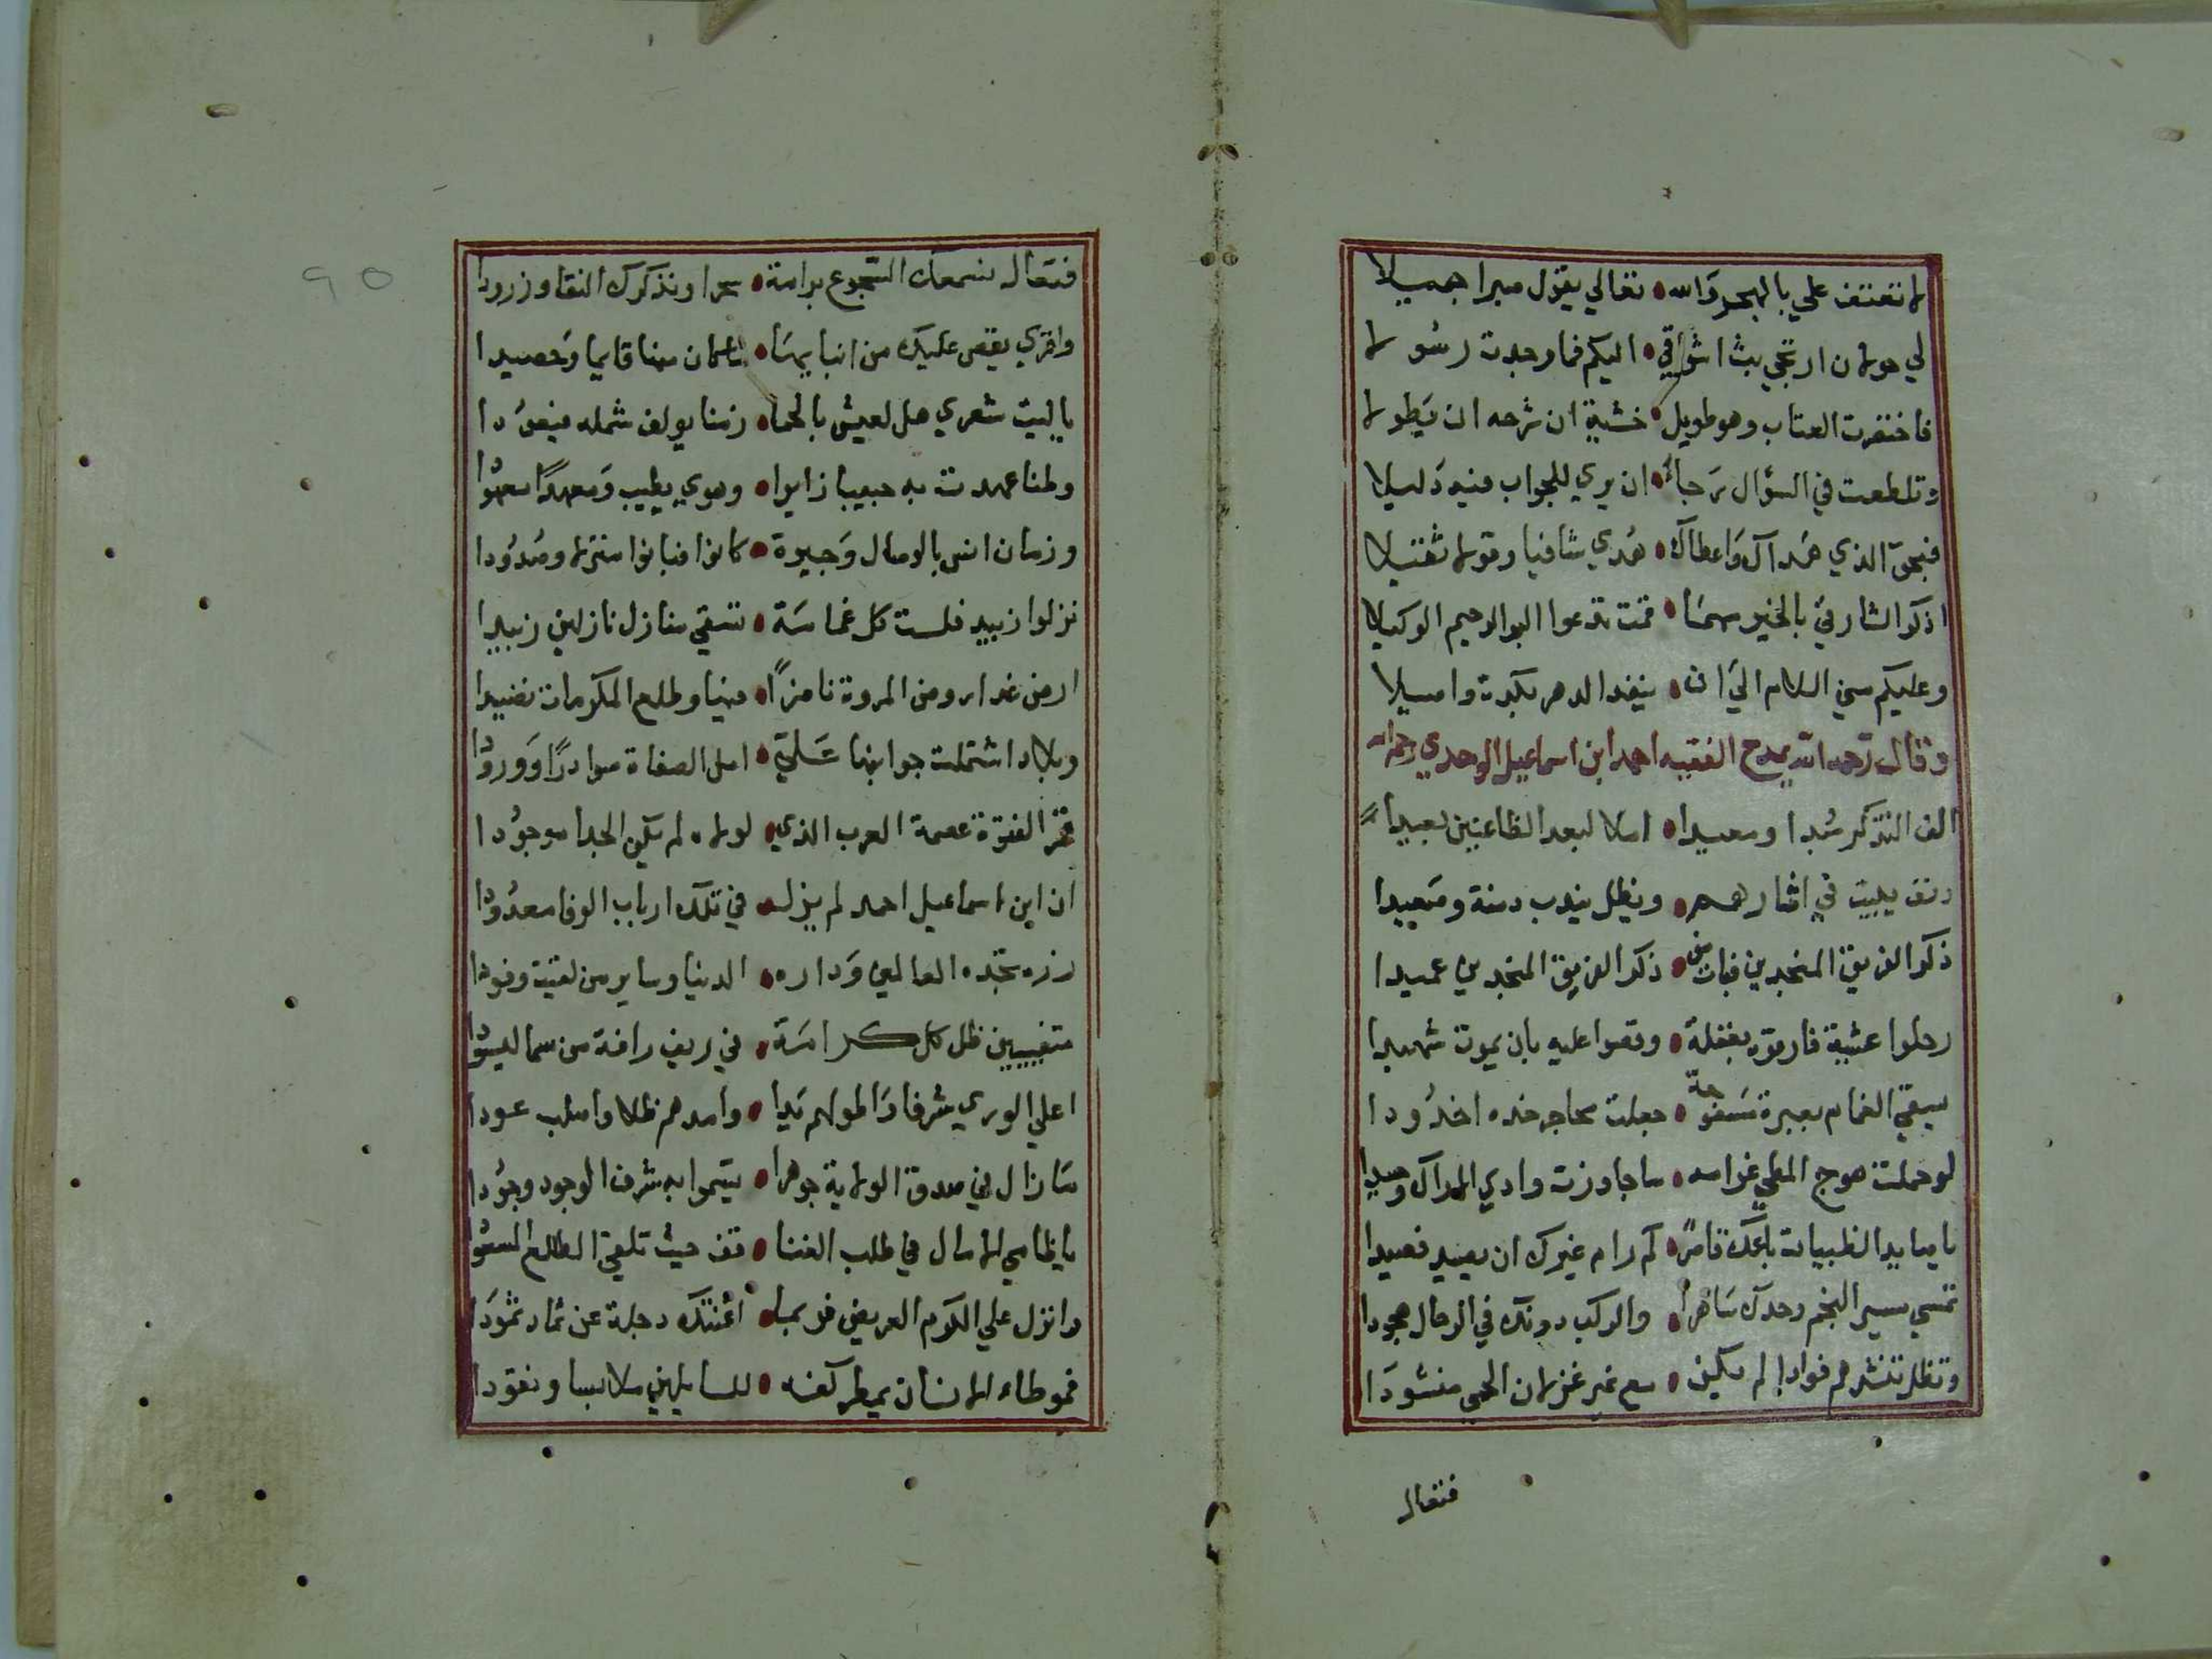 لا تعتنف علي بالهجر والله • تعالي يقول صبرا جميلا
لي حولان ارتجي بث اشواقي • اليكم فما وجدت رسولا
فاختصرت العتاب وهو طويل • خشية ان شرحه ان يطولا
وتلطفت في السؤال رجاء • ان يري للجواب فيه دليلا
فبحق الذي هداك واعطاك • هدي شافيا وقولا ثقيلا
اذكر الشارفي بالخير مهما • قمت تدعوا البر الرحيم الوكيلا
وعليكم مني السلام الي ان • ينفد الدهر بكرة واصيلا
وقال رحمه الله يمدح الفقيه احمد ابن اسماعيل الوحدي رحمه الله
الف التذكر مبدا ومعيدا • اسلا لبعد الظاعنين بعيدا
دنف يبيت في اثارهم • ويظل يندب دمنة وصعيدا
ذكر الفريق المنجدين فبات من • ذكر الفريق المنجدين عميدا
رحلوا عشية فارقوه بغفلة • وقضوا عليه بان يموت شهيدا
يسقي الغمام بعبرة مسفوحة • جعلت محاجر خده اخدودا
لو حملت هوج المطي غرامه • ما جاوزت وادي الاراك وصيدا
يا صايد الظبيات باعك قاصرا • كم رام غيرك ان يصيد فصيدا
تمسي سير النجم وحدك ساهرا • والركب دونك في الرحال هجودا
وتظل تنشدهم فوادا لم يكن • مع غير غزلان الحمي منشودا
فتعال
فتعال نسمعك التجوع برامة • سحرا ونذكرك النقا وزرودا
واقري يقص عليك من انبايها • ما كان منها قايما وحصيدا
يا ليت شعري هل لعيش بالحما • زمنا يولف شمله فيعودا
وطنا عهدت به حبيبا زايرا • وهوي يطيب ومعهدا معهودا
وزمان انس بالوصال وجيرة • كانوا فبانوا منزلا وصدودا
نزلوا زبيد فلست كل غمامة • تسقي منازل نازلين زبيدا
ارض غدا روض المروة ناضرا • فيها وطلع المكرمات نضيدا
وبلاد اشتملت جوانبها علي • اهل الصفاة مواردا وورودا
قمر الفتوة عصمة العرب الذي • لولاه لم يكن الجدا موجودا
ان ابن اسماعيل احمد لم يزل • في تلك ارباب الوفا معدودا
زره تجده العالمي وداره • الدنيا وساير من لقيت وفودا
متفيين ظل كل كرامة • في ريف رافة من سما ليسودا
اعلي الوري شرفا واطولهم يدا • وامدهم ظلا واصلب عودا
ما زال في صدق الولاية جوهرا • يسموا به شرف الوجود وجودا
يا ظامي الامال في طلب الغنا • قف حيث تلقي الطلع المسعودا
وانزل علي الكرم العريض فربما • اغنتك دجلة عن ثماد ثمودا
فموطاء الاكناف يمطر كفه • للسايلين ملابسا ونقودا